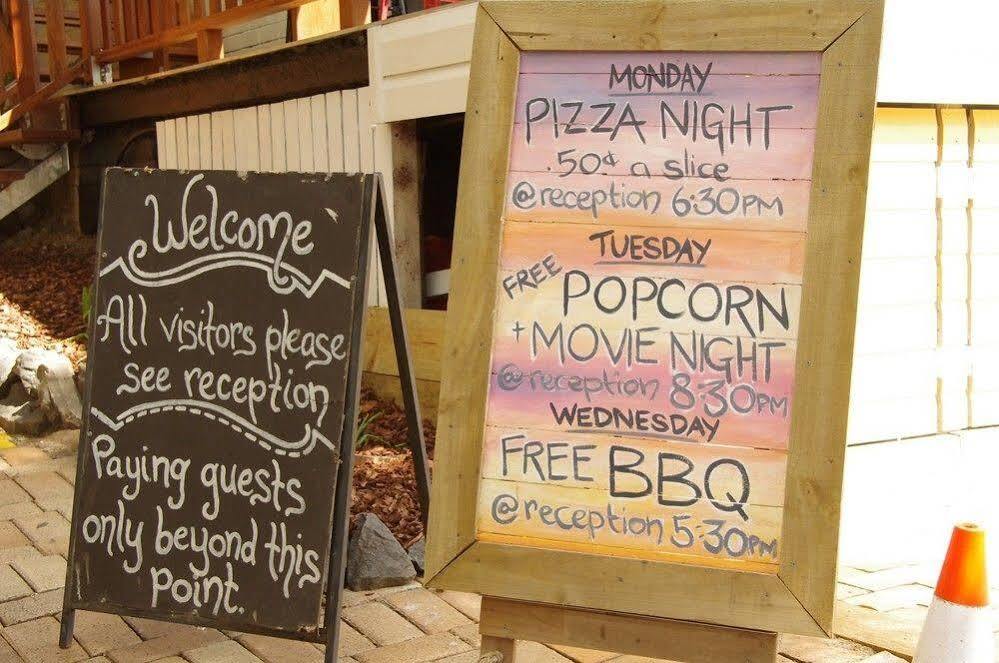 Welcome
All visitors please
see reception
Paying guests
only beyond this
point.
MONDAY
PIZZA NIGHT
.50¢ a slice
@reception 6:30PM
TUESDAY
FREE POPCORN
+ MOVIE NIGHT
@reception 8:30PM
WEDNESDAY
FREE BBQ
@reception 5:30PM